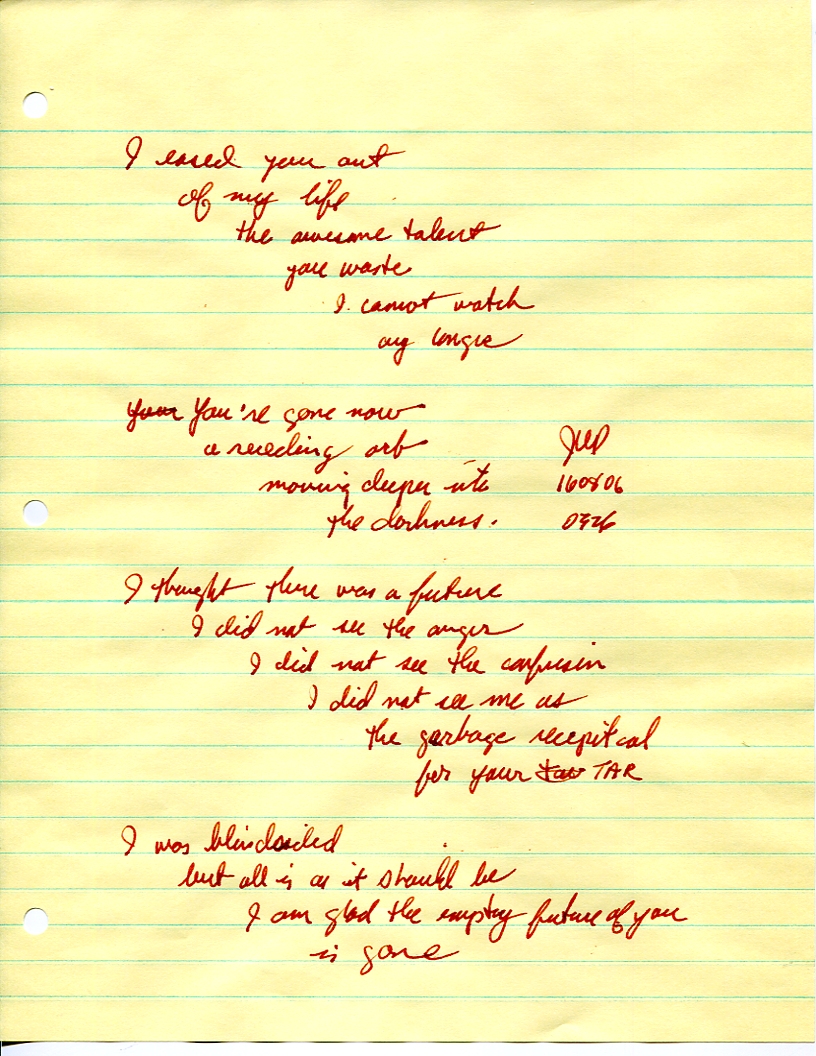 I eased your out
of my life
the awesome talent
you waste
I cannot watch
any longre
your You're gone now
a receding orb
moving deeper into
the darkness.
160806
I thought there was a future
I did not see the anger
I did not see the confusion
I did not see me as
the garbage recepitcal
for your TAR
I was blindsided
but all is as it should be
I am glad the empty future of you
is gone